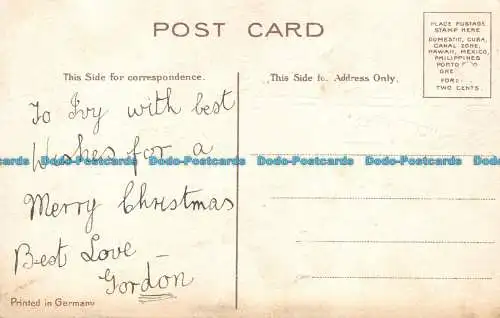 POST CARD
PLACE POSTAGE
STAMP HERE
DOMESTIC, CUBA,
CANAL ZONE,
HAWAII, MEXICO,
PHILIPPINES
PORTO
FOR
TWO CENTS.
This Side for correspondence.
This Side for Address Only.
To Ivy with best
Wishes for a
Dodo-Postcards Dodo-Postcards Dodo-Postcards Dodo-Postcards
Merry Christmas
Best Love
Gordon
Printed in Germany